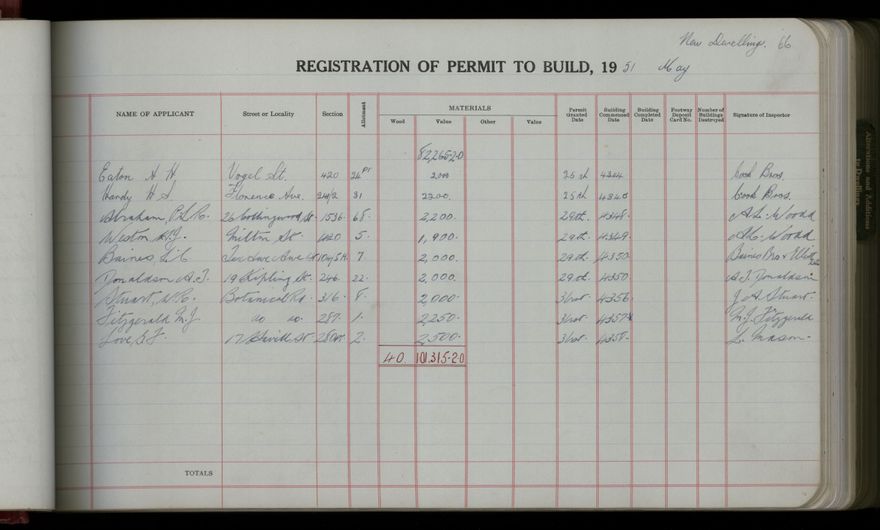 New Dwellings. 66
REGISTRATION OF PERMIT TO BUILD, 1951 May
NAME OF APPLICANT Street or Locality Section Allotment MATERIALS Wood Value Other Value Permit Granted Date Building Commenced Date Building Completed Date Footway Deposit Card No. Number of Buildings Destroyed Signature of Inspector
82,265-2-0
Eaton A H. Vogel St. 420 26 pt 2,000 25th 4344 Cook Bros.
Hardy H S. Florence Ave. 31 2200. 25th 4345 Cook Bros.
Abraham, 26 Collingwood St 1536 68. 2,200. 29th. 4348. A.L. Woodd
Weston Milton St. 5. 1,900. 29th. 4349 A.L. Woodd
Baines 7. 2,000. 29th. 4350 Baines Bros &
Donaldson A.J. 19 Kipling St. 246. 22. 2,000. 29th. 4350 A.J. Donaldson
Stuart, Botanical Rd. 316. 8. 2,000. 31st. 4356 J A Stuart.
Fitzgerald M.J do do. 287. 1. 2250. 31st. 4357 M.J. Fitzgerald
Love, G.F. 17 St 2. 2,500. 31st. 4358. L. Mason.
40 101.315-2-0
TOTALS
Alterations and Additions to Dwellings